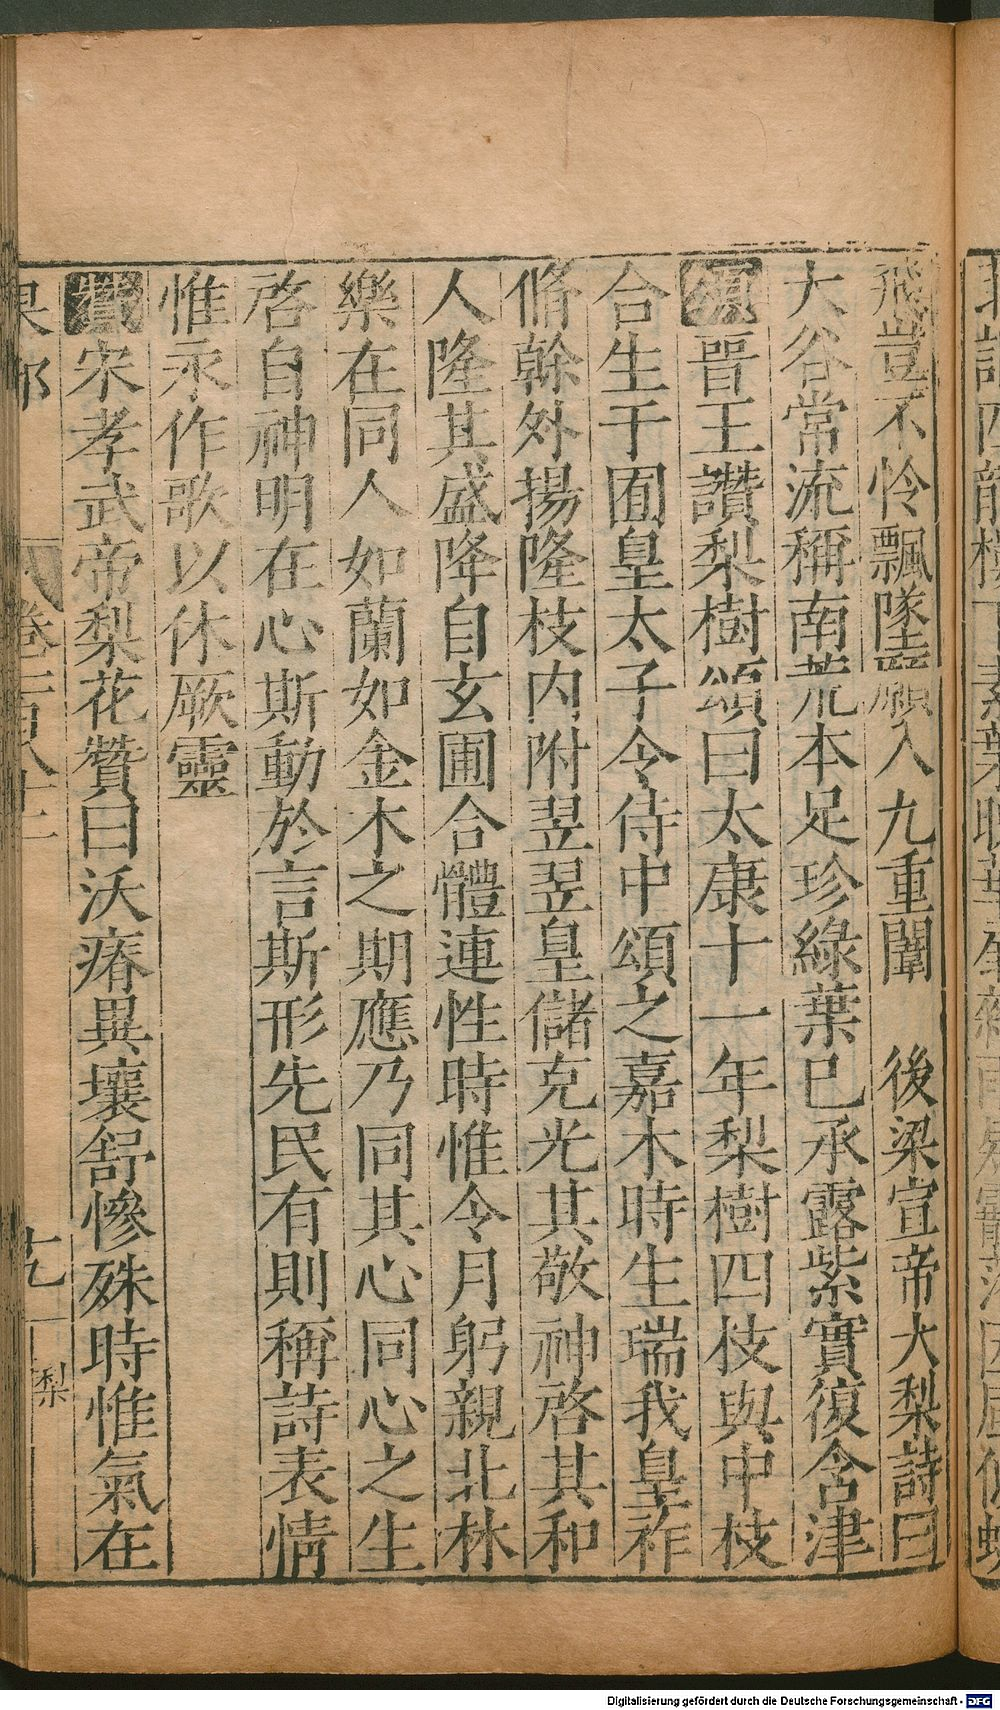 飛豈不怜飄墜願入九重闈　後梁宣帝大梨詩曰
大谷常流稱南荒本足珍綠葉已承露紫實復含津
頌晉王讚梨樹頌曰太康十一年梨樹四枝與中枝
合生于囿皇太子令侍中頌之嘉木時生瑞我皇祚
脩幹外揚隆枝內附翌翌皇儲克光其敬神啓其和
人隆其盛降自玄圃合體連性時惟令月躬親北林
樂在同人如蘭如金木之期應乃同其心同心之生
啓自神明在心斯動於言斯形先民有則稱詩表情
惟永作歌以休厥靈
贊宋孝武帝梨花贊曰沃瘠異壤舒慘殊時惟氣在
果部
卷二百八十二
十九
梨
Digitalisierung gefördert durch die Deutsche Forschungsgemeinschaft - DFG